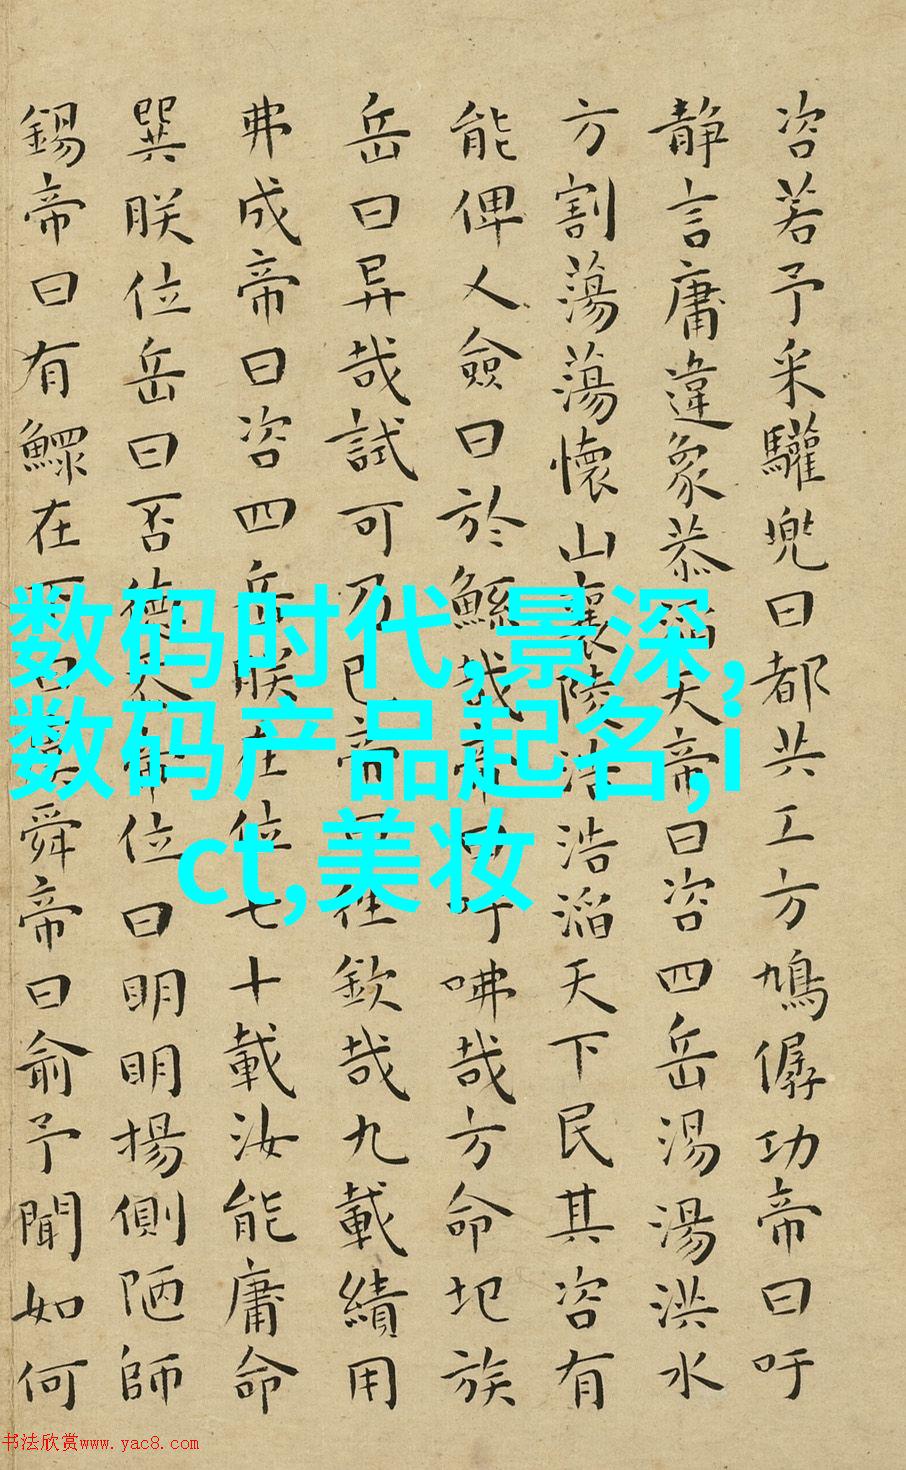 咨若予采驩兜曰都共工方鳩僝功帝曰吁
静言庸違象恭滔天帝曰咨四岳湯湯洪水
方割蕩蕩懷山襄陵浩浩滔天下民其咨有
能俾乂僉曰於鯀哉帝曰吁咈哉方命圮族
岳曰异哉試可乃已帝曰往欽哉九載績用
弗成帝曰咨四岳朕在位七十載汝能庸命
巽朕位岳曰否德忝帝位曰明明揚側陋師
錫帝曰有鰥在下曰虞舜帝曰俞予聞如何
数码时代,景深,
数码产品起名,i
ct,美妆
书法欣赏www.yac8.com